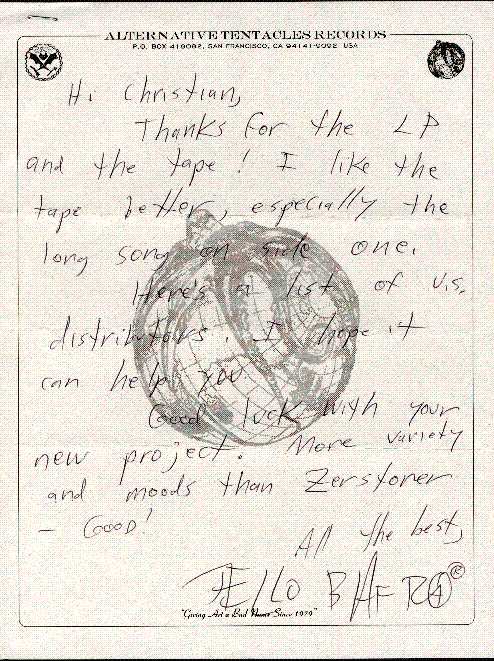 ALTERNATIVE TENTACLES RECORDS
P.O. BOX 419092, SAN FRANCISCO, CA 94141-9092 USA
Hi Christian,
Thanks for the LP
and the tape! I like the
tape better, especially the
long song on side one.
Here's a list of U.S.
distributors. I hope it
can help you.
Good luck with your
new project. More variety
and moods than Zerstoner
- Good!
All the best,
JELLO BIAFRA®
"Giving Art a Bad Name Since 1979"